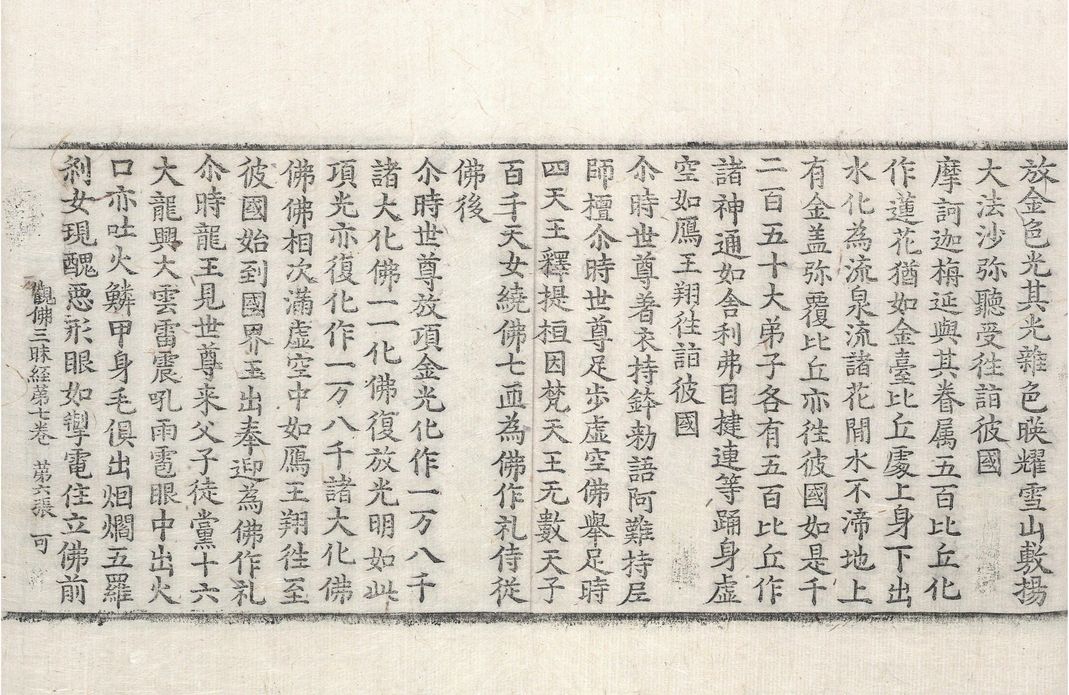 放金色光其光雜色暎耀雪山敷揚
大法沙弥聽受徃詣彼國
摩訶迦栴延與其眷属五百比丘化
作蓮花猶如金臺比丘處上身下出
水化為流泉流諸花間水不渧地上
有金盖弥覆比丘亦徃彼國如是千
二百五十大弟子各有五百比丘作
諸神通如舍利弗目揵連等踊身虛
空如鴈王翔徃詣彼國
尒時世尊著衣持鉢勑語阿難持尼
師檀尒時世尊足步虛空佛舉足時
四天王釋提桓因梵天王无數天子
百千天女繞佛七迊為佛作礼侍從
佛後
尒時世尊放項金光化作一万八千
諸大化佛一一化佛復放光明如此
項光亦復化作一万八千諸大化佛
佛佛相次滿虛空中如鴈王翔徃至
彼國始到國界王出奉迎為佛作礼
尒時龍王見世尊来父子徒黨十六
大龍興大雲雷震吼雨雹眼中出火
口亦吐火鱗甲身毛俱出烟爓五羅
剎女現醜惡形眼如掣電住立佛前
觀佛三昧経第七卷 第六張 可